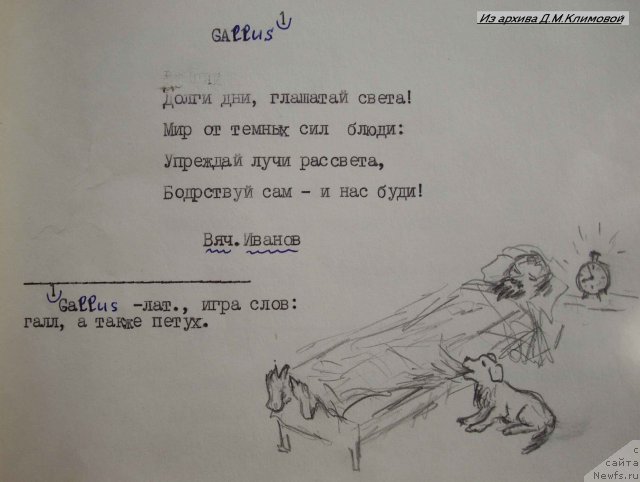 Из архива Д.М.Климовой
GAllus 1
Долги дни, глашатай света!
Мир от темных сил блюди:
Упреждай лучи рассвета,
Бодрствуй сам - и нас буди!
Вяч.Иванов
1 Gallus -лат., игра слов:
галл, а также петух.
с
сайта
Newfs.ru